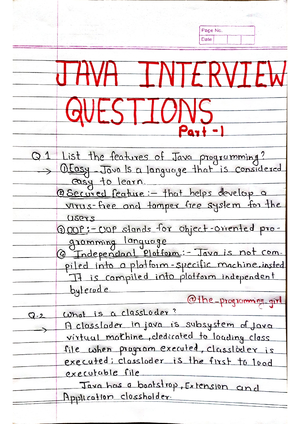 Page No.
Date
JAVA INTERVIEW
QUESTIONS
Part -1
Q 1 List the features of Java programming?
→ ① Easy - Java Is a language that is considered
easy to learn.
② Secured feature :- that helps develop a
virus-free and tamper free system for the
users
③ OOP :- OOP stands for object-oriented pro-
gramming language
④ Independant Platform :- Java is not com-
piled into a platform-specific machine, insted
It is compiled into platform independent
bytecode.
@the_programmer_girl
Q.2 What is a classloder?
→ A classloder in java is subsystem of Java
virtual machine, dedicated to loading class
file when program executed, classloder is
executed; classloder is the first to load
executable file
Java has a bootstrop, Extension and
Application classholder.